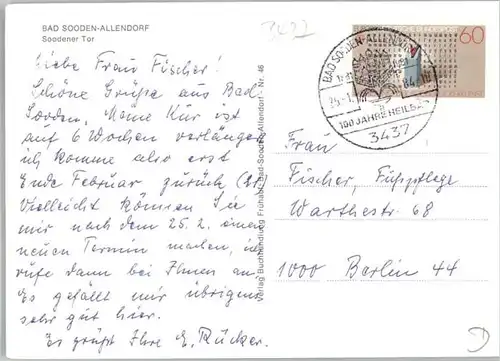 BAD SOODEN-ALLENDORF
Soodener Tor
3437
Liebe Frau Fischer!
Schöne Grüße aus Bad
Sooden. Meine Kur ist
auf 6 Wochen verlängert
ich komme also erst
Ende Februar zurück
Vielleicht können Sie
mir nach dem 25. 2. einen
neuen Termin machen, ich
rufe dann bei Ihnen an.
Es gefällt mir übrigens
sehr gut hier.
Es grüßt Ihre E. Rücker.
Verlag Buchhandlung Bad Sooden-Allendorf Nr. 46
60
BAD SOODEN-ALLENDORF
100 JAHRE HEILBAD
3437
Frau
Fischer, Fußpflege
Warthestr. 68
1000 Berlin 44